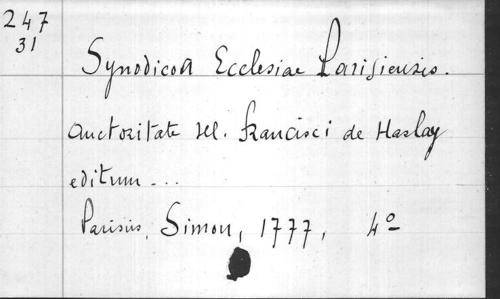 247
31
Synodicon Ecclesiae Parisiensis.
auctoritate Ill. Francisci de Harlay
editum ...
Parisiis, Simon, 1777, 4º